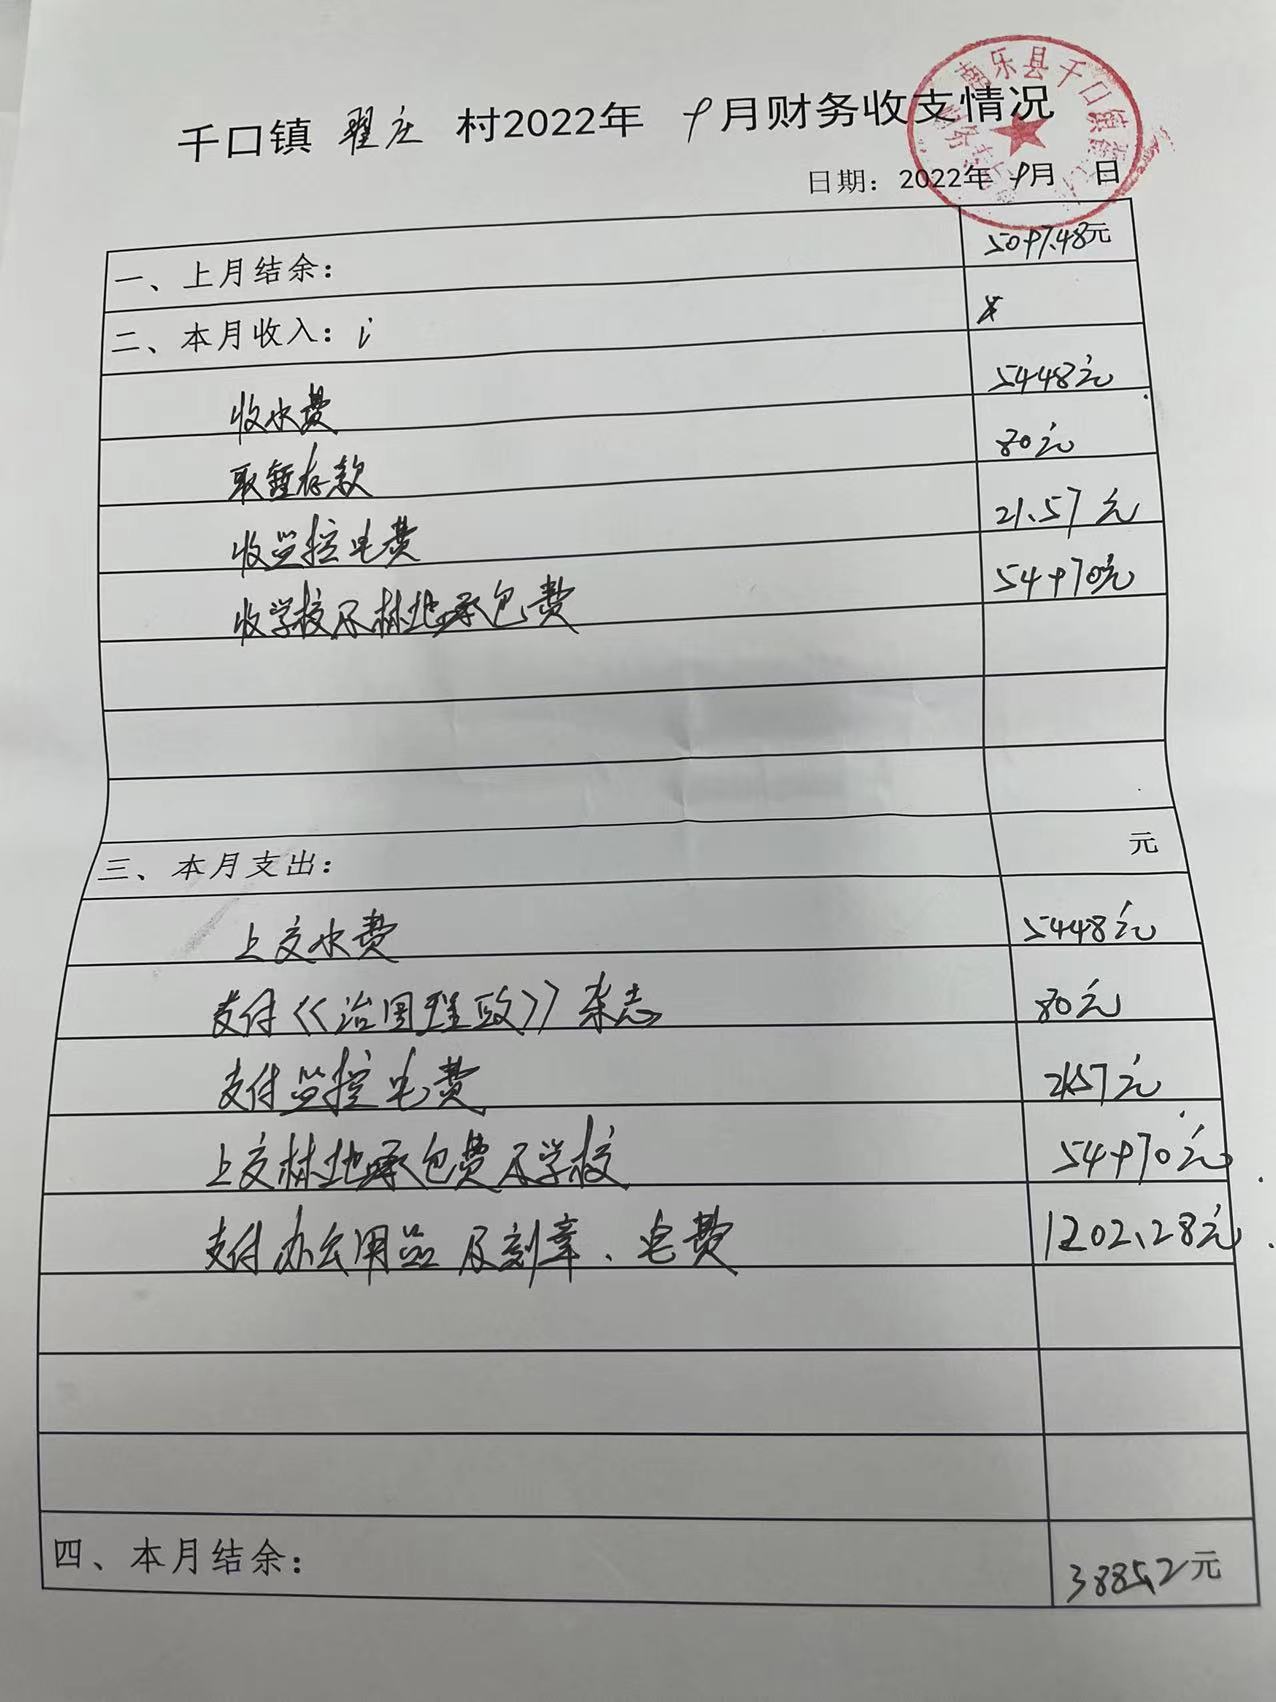 千口镇 翟庄 村2022年 9月财务收支情况
日期：2022年 9月 日
一、上月结余： 5097.48元
二、本月收入：
收水费 5448元
取暂存款 80元
收监控电费 21.57元
收学校及林地承包费 54970元
三、本月支出： 元
上交水费 5448元
支付《治国理政》杂志 80元
支付监控电费 21.57元
上交林地承包费及学校 54970元
支付办公用品及刻章、电费 1202.28元
四、本月结余： 3885.2元
南乐县千口镇